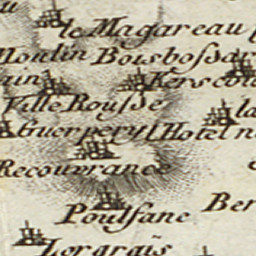 le Magareau
Moulin Boisbossar
Kerscou
Ville Rousse
la
Guerpery l'Hotel n
Recouvrance
Poulsane Ber
Lorgrais